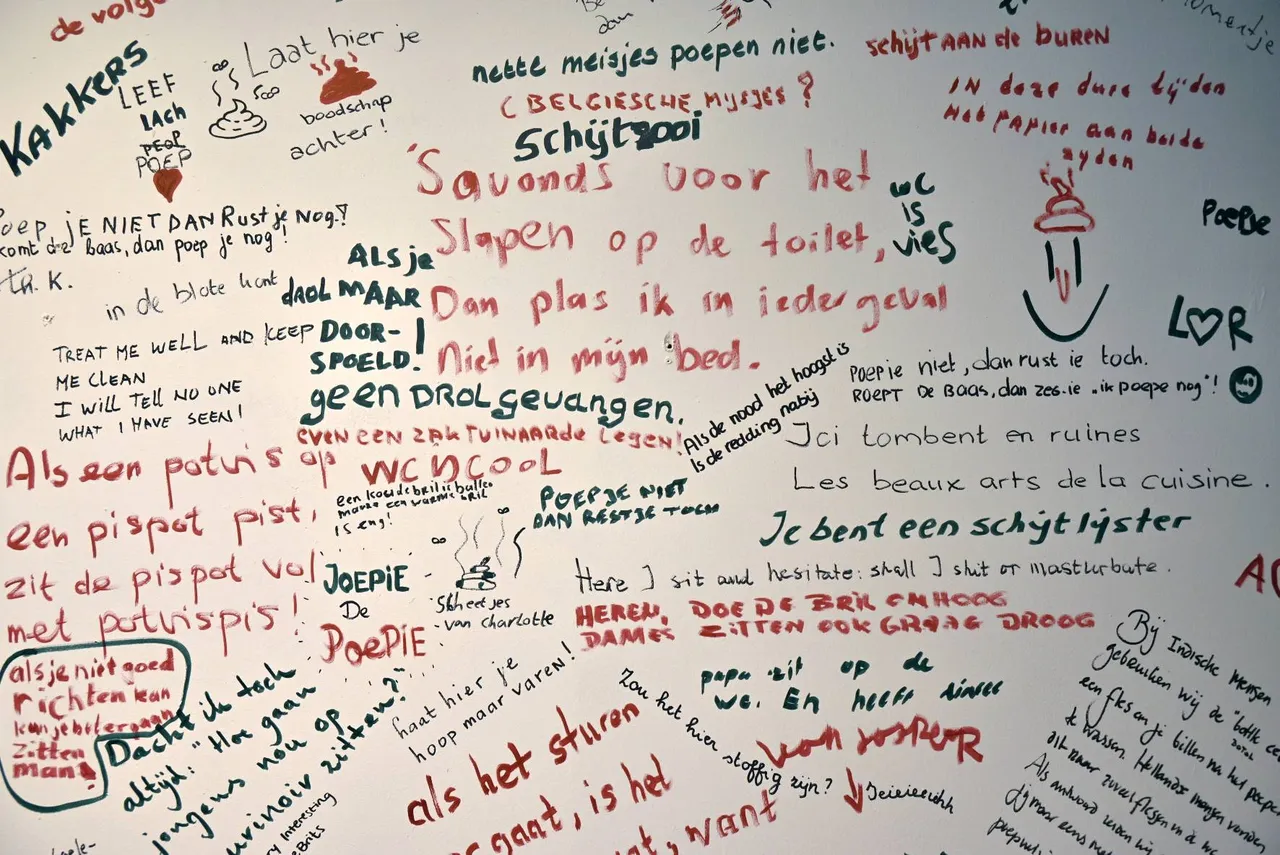 de volge
KAKKERS
LEEF
LACH
POEP
Laat hier je
boodschap
achter!
nette meisjes poepen niet.
(BELGIESCHE MYSJES?
Schijtzooi
schijt AAN de BUREN
IN deze dure tijden
Het PAPIER aan beide
zyden
'Savonds voor het
Slapen op de toilet,
Dan plas ik in ieder geval
Niet in mijn bed.
WC
IS
VIES
POEPIE
L♥R
Poep jE NIET DAN Rust je NOG.?
komt de Baas, dan poep je nog!
in de blote kont
ALS je
drol MAAR
DOOR-
SPOELD!
geen DROL gevangen.
EVEN EEN ZAK TUINAARDE LEGEN!
TREAT ME WELL AND KEEP
ME CLEAN
I WILL TELL NO ONE
WHAT I HAVE SEEN!
Als de nood het hoogst is
Is de redding nabij
POEPie niet, dan rust ie toch.
ROEPT DE BAAS, dan zeg.ie „ik poepe nog"!
Ici tombent en ruines
Les beaux arts de la cuisine.
Als een potvis op
een pispot pist,
zit de pispot vol
met potvispis!
WC IS COOL
een koude bril is balen
maar een warme bril
IS eng!
POEP JE NIET
DAN RESTJE TOCH
Je bent een schijtlijster
JOEPIE
De
POEPIE
Skheetjes
van charlotte
Here I sit and hesitate: shall I shit or masturbate.
HEREN, DOE DE BRIL OMHOOG
DAMES ZITTEN OOK GRAAG DROOG
als je niet goed
richten kan
kan je beter gaan
Zitten
man!
Dacht ik toch
altijd: "Hoe gaan
jongens nou op
urinoir zitten?"
haat hier je
hoop maar varen!
papa zit op de
wc. En heeft
van JOSPER
Zou het hier stoffig zijn?
als het sturen
gaat, is het
want
Bij Indische mensen
gebruiken wij de "botol
een fles om je billen na het poepen
te wassen.
Als antwoord